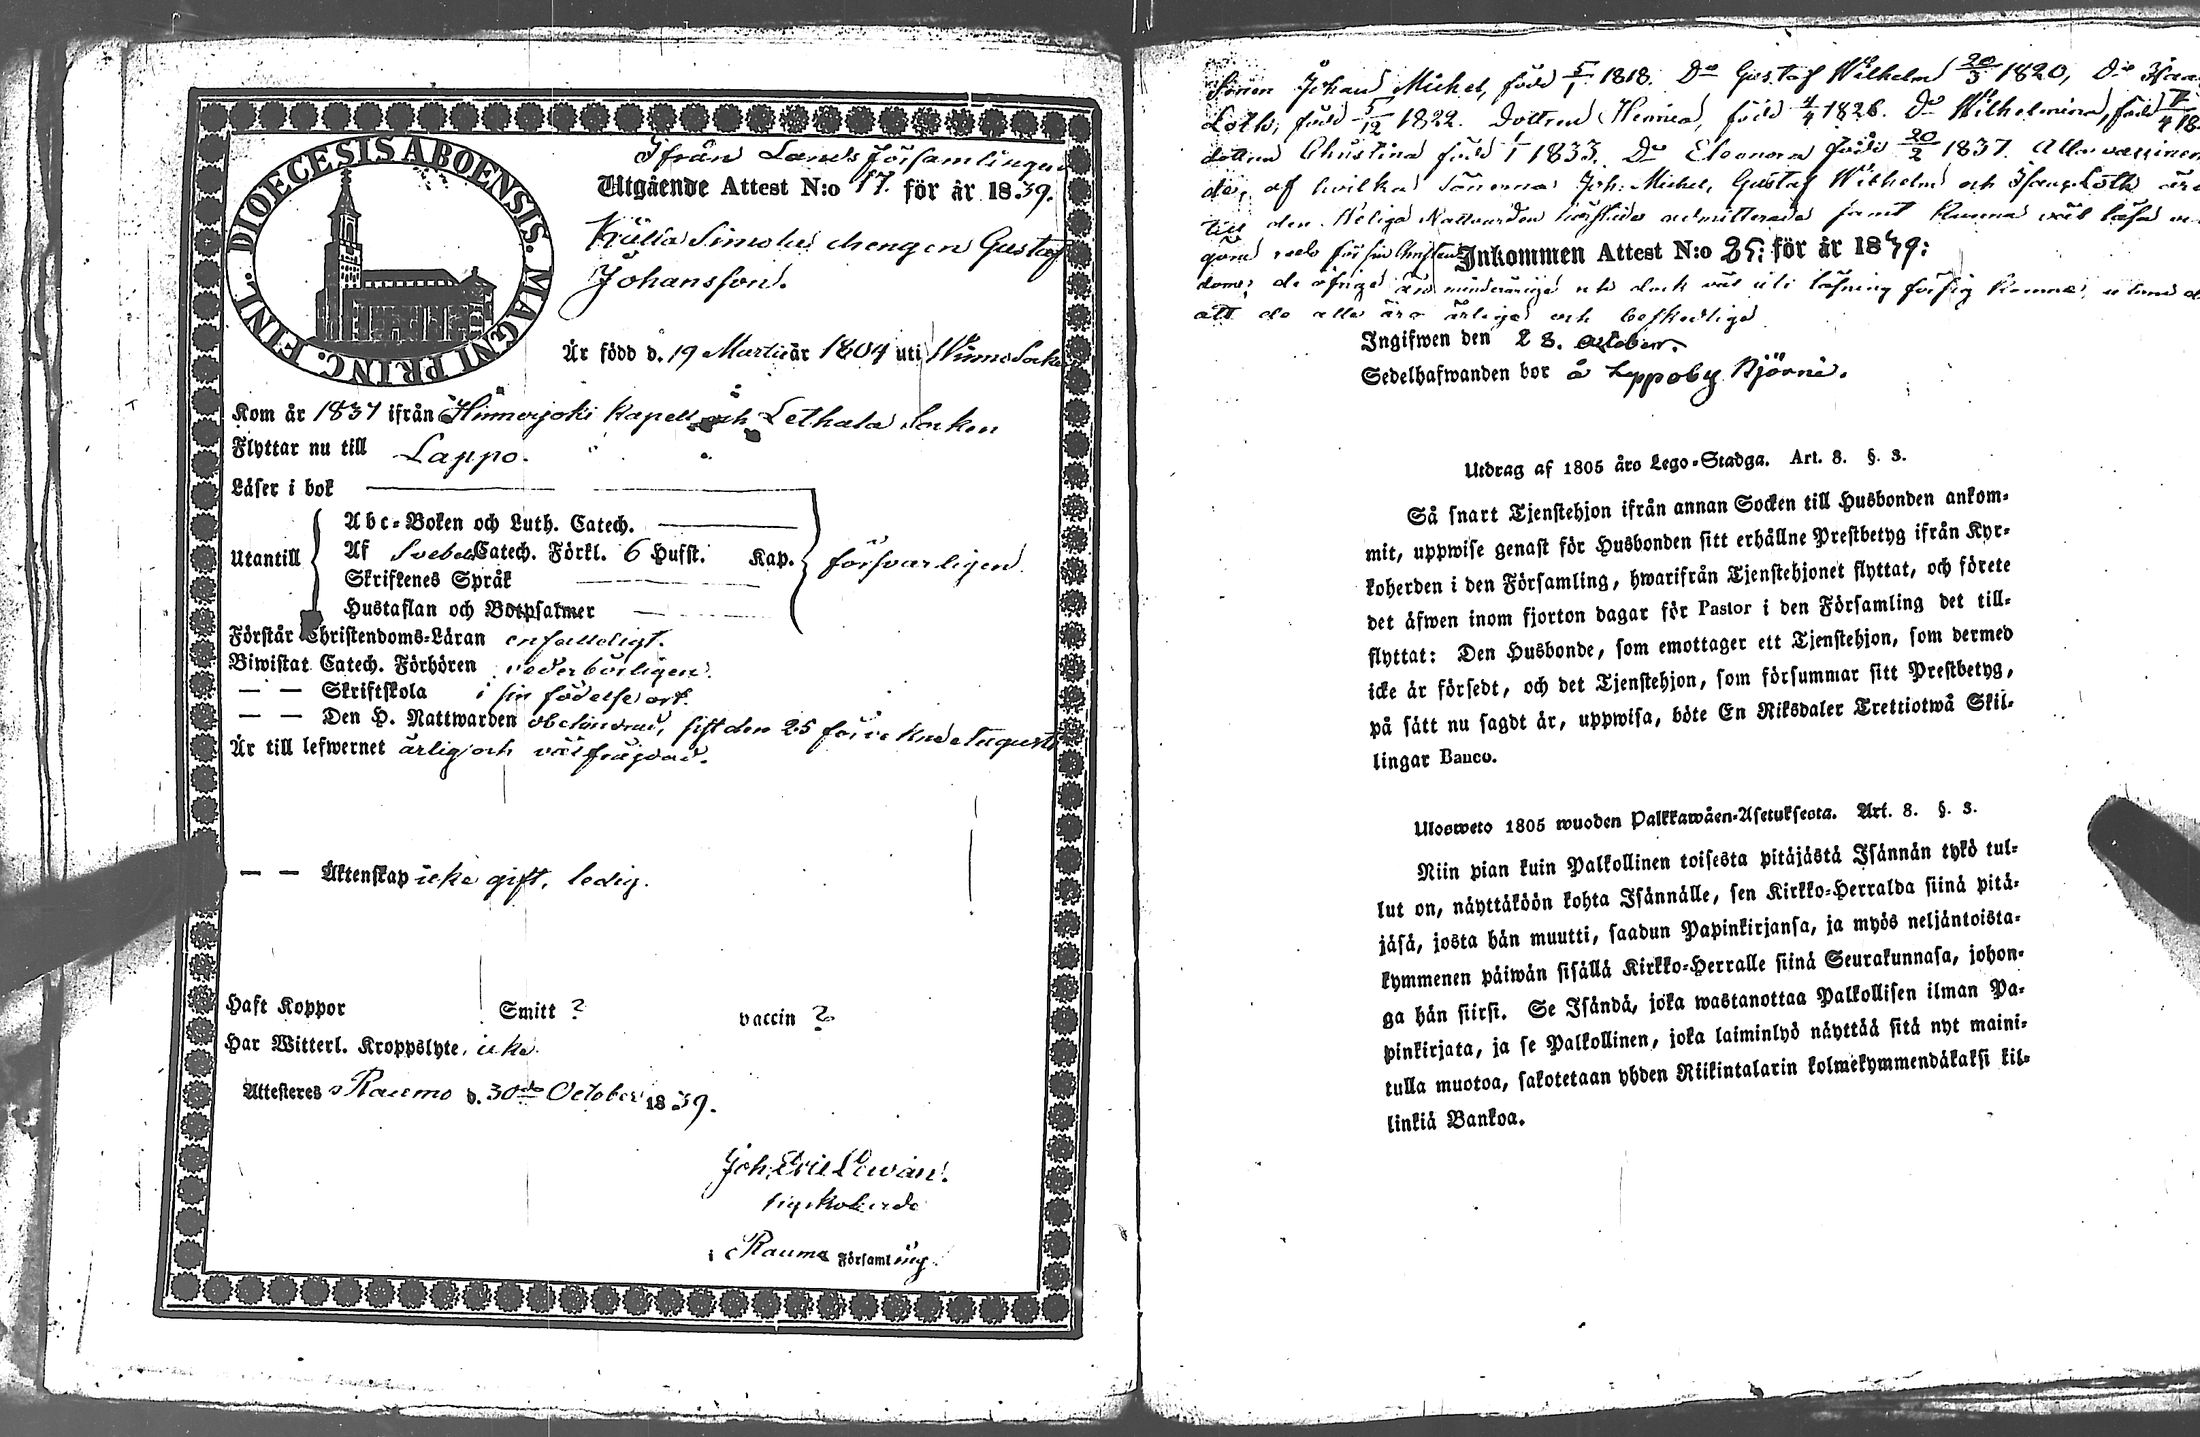 DIOECESIS ABOENSIS. MAGNI PRINC. FINL.
Ifrån Lands församlingen
Utgående Attest N:o 17. för år 1839.
drengen Gustaf
Johansson.
Är född d. 19 Martii år 1804 uti Socken
Kom år 1837 ifrån Hinnerjoki Kapell och Lethala Socken
Flyttar nu till Lappo.
Läser i bok
Utantill
Abc-Boken och Luth. Catech.
Af Svebel. Catech. Förkl. 6 Hufst. Kap. försvarligen.
Skriftenes Språk
Hustaflan och Botpsalmer
Förstår Christendoms-Läran enfalleligt.
Biwistat Catech. Förhören vederbörligen.
— — Skriftskola i sin födelse ort.
— — Den H. Nattwarden obehindrad, sist den 25 Augusti
Är till lefwernet ärlig och välfrägdad.
— — Äktenskap icke gift, ledig.
Haft Koppor Smitt ? vaccin ?
Har Witterl. Kroppslyte, icke.
Attesteres Raumo d. 30de October 1839.
Joh. Eric Lewan.
Kyrkoherde
i Raumo Församling.
Sönen Johan Michel, född 5/1 1818. Do Gustaf Wilhelm 20/3 1820, Do
Loth, född 5/12 1822. Dottren född 4/4 1826. Do Wilhelmina, född
dottren Christina född 1/1 1833. Do Eleonora född 20/2 1837. Alla
de, af hvilka Sönerna Joh: Michel, Gustaf Wilhelm och Loth
till den Heliga Nattvarden admitterade samt kunna väl läsa
göra reda för sin Christen
Inkommen Attest N:o 25: för år 1839:
dom; de öfrige äro minderårige dock väl uti läsning
att de alla äro ärliga och beskedliga
Ingifwen den 28. october.
Sedelhafwanden bor å Leppoby Björni.
Utdrag af 1805 års Lego-Stadga. Art. 8. §. 3.
Så snart Tjenstehjon ifrån annan Socken till Husbonden ankom-
mit, uppwise genast för Husbonden sitt erhållne Prestbetyg ifrån Kyr-
koherden i den Församling, hwarifrån Tjenstehjonet flyttat, och förete
det äfwen inom fjorton dagar för Pastor i den Församling det till-
flyttat: Den Husbonde, som emottager ett Tjenstehjon, som dermed
icke är försedt, och det Tjenstehjon, som försummar sitt Prestbetyg,
på sätt nu sagdt är, uppwisa, böte En Riksdaler Trettiotwå Skil-
lingar Banco.
Ulosweto 1805 wuoden Palkkawäen-Asetuksesta. Art. 8. §. 3.
Niin pian kuin Palkollinen toisesta pitäjästä Isännän tykö tul-
lut on, näyttäköön kohta Isännälle, sen Kirkko-Herralda siinä pitä-
jäsä, josta hän muutti, saadun Papinkirjansa, ja myös neljäntoista-
kymmenen päiwän sisällä Kirkko-Herralle siinä Seurakunnasa, johon-
ga hän siirsi. Se Isändä, joka wastanottaa Palkollisen ilman Pa-
pinkirjata, ja se Palkollinen, joka laiminlyö näyttää sitä nyt maini-
tulla muotoa, sakotetaan yhden Riikintalarin kolmekymmendäkaksi kil-
linkiä Bankoa.